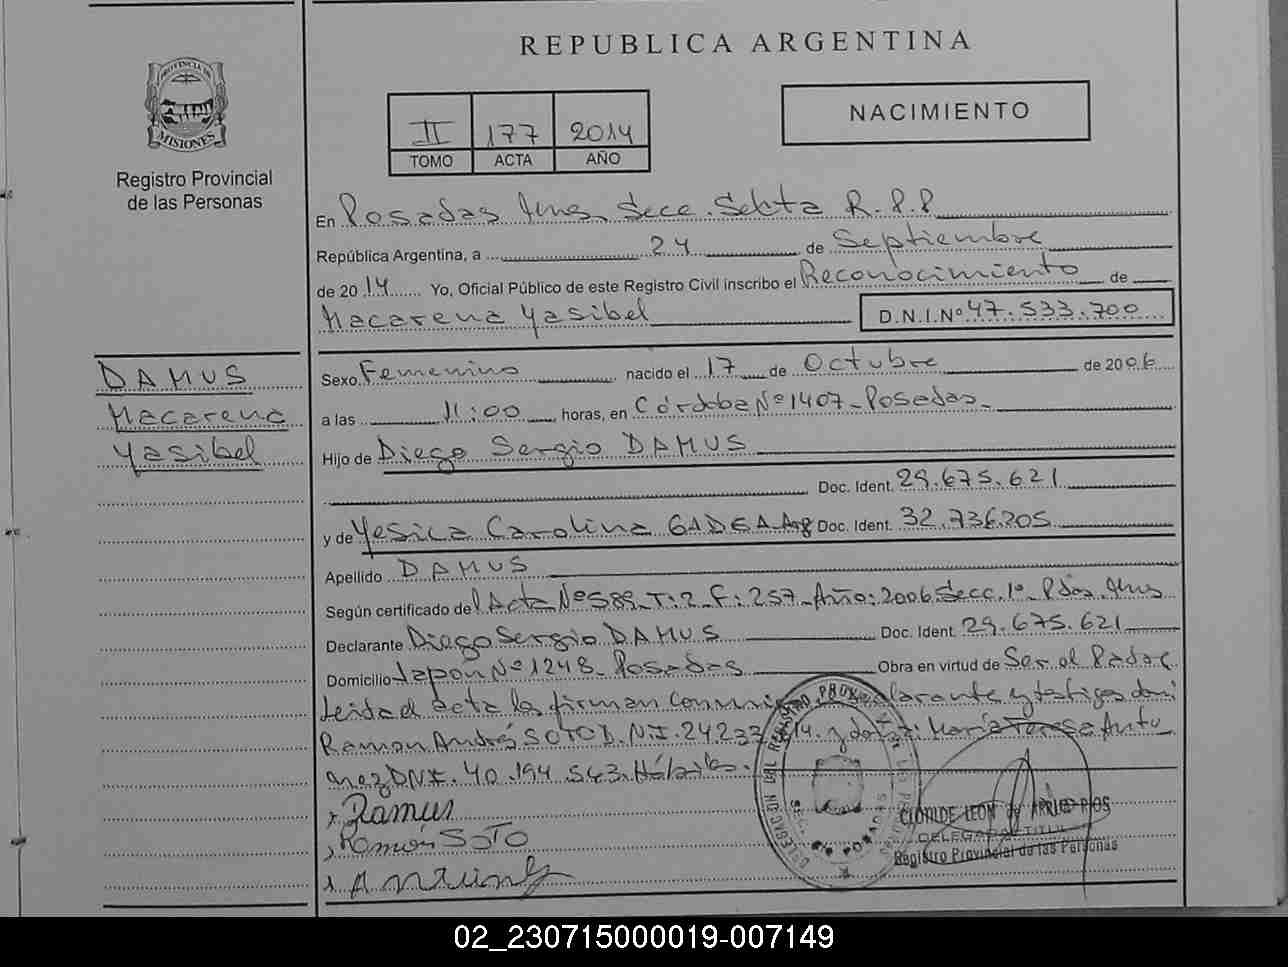 REPUBLICA ARGENTINA
PROVINCIA DE
MISIONES
Registro Provincial
de las Personas
II 177 2014
TOMO ACTA AÑO
NACIMIENTO
En Posadas Mnes. Secc. Sexta R.P.P
República Argentina, a 24 de Septiembre
de 2014 Yo, Oficial Público de este Registro Civil inscribo el Reconocimiento de
Macarena Yasibel D.N.I.Nº 47.533.700
DAMUS
Macarena
Yasibel
Sexo Femenino nacido el 17 de Octubre de 2006
a las 11:00 horas, en Córdoba Nº 1407-Posadas-
Hijo de Diego Sergio DAMUS
Doc. Ident. 29.675.621
y de Yesica Carolina GADEA-Arg Doc. Ident. 32.736.205
Apellido DAMUS
Según certificado del Acta Nº 589-T:2-F:257-Año:2006 Secc. 1º- Pdas. Mns
Declarante Diego Sergio DAMUS Doc. Ident. 29.675.621
Domicilio Japón Nº 1248-Posadas Obra en virtud de Ser el Padre
Leida el acta la firman conmigo declarante y testigos don:
Ramon Andrés SOTO D.N.I. 24233 14. y doña: María Teresa Antu
nez DNI. 40.194.543. Hábiles.
Damus
Ramón SOTO
Antunez
CLOTILDE LEON de RIOS
DELEGADA TITULAR
Registro Provincial de las Personas
02_230715000019-007149